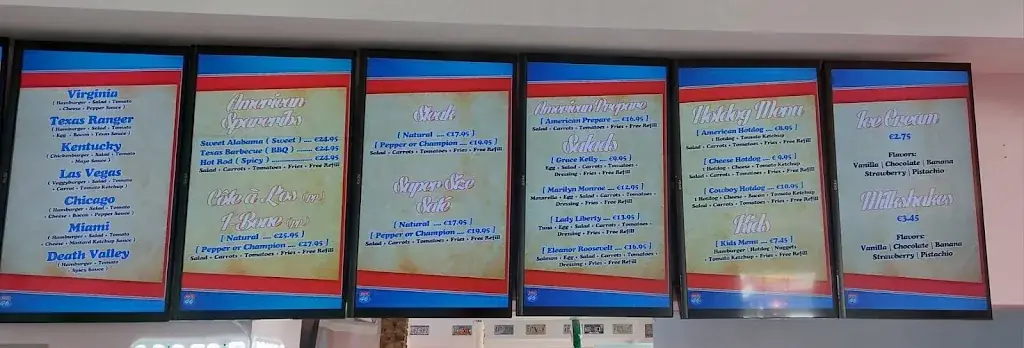 Virginia
( Hamburger • Salad • Tomato
• Cheese • Pepper Sauce )
Texas Ranger
( Hamburger • Salad • Tomato
• Egg • Bacon • Texas Sauce )
Kentucky
( Chickenburger • Salad • Tomato
• Mayo Sauce )
Las Vegas
( Veggyburger • Salad • Tomato
• Carrot • Tomato Ketchup )
Chicago
( Hamburger • Salad • Tomato
• Cheese • Bacon • Pepper Sauce )
Miami
( Hamburger • Salad • Tomato
• Cheese • Mustard Ketchup Sauce )
Death Valley
( Hamburger • Tomato
• Spicy Sauce )
American
Spareribs
Sweet Alabama ( Sweet ) ... €24.95
Texas Barbecue ( BBQ ) ... €24.95
Hot Rod ( Spicy ) ... €24.95
Salad • Carrots • Tomatoes • Fries • Free Refill
Côte à L'os (pp)
T-Bone (pp)
[ Natural ... €25.95 ]
[ Pepper or Champion ... €27.95 ]
Salad • Carrots • Tomatoes • Fries • Free Refill
Steak
[ Natural ... €17.95 ]
[ Pepper or Champion ... €19.95 ]
Salad • Carrots • Tomatoes • Fries • Free Refill
Super Size
Saté
[ Natural ... €17.95 ]
[ Pepper or Champion ... €19.95 ]
Salad • Carrots • Tomatoes • Fries • Free Refill
American Prepare
[ American Prepare ... €16.95 ]
Salad • Carrots • Tomatoes • Fries • Free Refill
Salads
[ Grace Kelly ... €9.95 ]
Egg • Salad • Carrots • Tomatoes •
Dressing • Fries • Free Refill
[ Marilyn Monroe ... €12.95 ]
Mozarella • Egg • Salad • Carrots • Tomatoes •
Dressing • Fries • Free Refill
[ Lady Liberty ... €13.95 ]
Tuna • Egg • Salad • Carrots • Tomatoes •
Dressing • Fries • Free Refill
[ Eleanor Roosevelt ... €16.95 ]
Salmon • Egg • Salad • Carrots • Tomatoes •
Dressing • Fries • Free Refill
Hotdog Menu
[ American Hotdog ... €8.95 ]
( Hotdog • Tomato Ketchup
Salad • Carrots • Tomatoes • Fries • Free Refill
[ Cheese Hotdog ... €9.95 ]
( Hotdog • Cheese • Tomato Ketchup
Salad • Carrots • Tomatoes • Fries • Free Refill
[ Cowboy Hotdog ... €10.95 ]
( Hotdog • Cheese • Bacon • Tomato Ketchup
Salad • Carrots • Tomatoes • Fries • Free Refill
Kids
[ Kids Menu ... €7.45 ]
Hamburger | Hotdog | Nuggets
• Tomato Ketchup • Fries • Free Refill
Ice Cream
€2.75
Flavors:
Vanilla | Chocolate | Banana
Strawberry | Pistachio
Milkshakes
€3.45
Flavors:
Vanilla | Chocolate | Banana
Strawberry | Pistachio